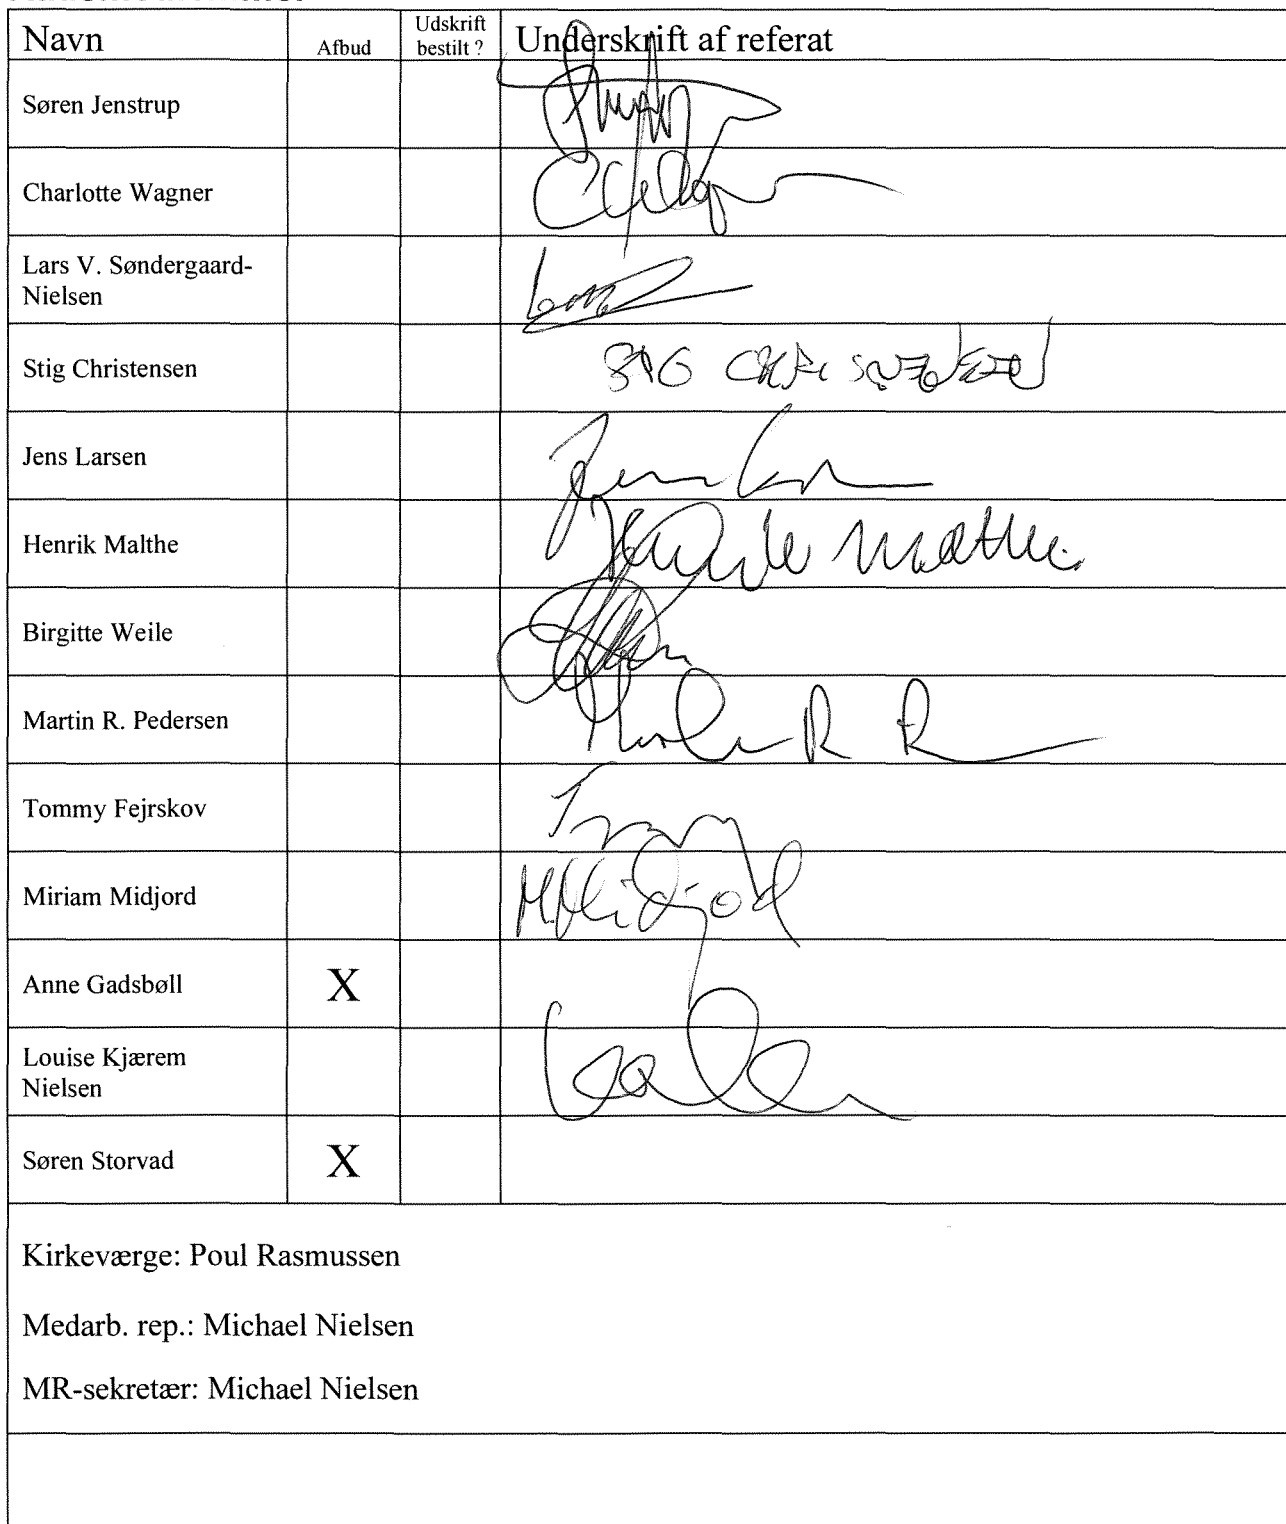 Navn Afbud Udskrift bestilt ? Underskrift af referat
Søren Jenstrup
Charlotte Wagner
Lars V. Søndergaard-
Nielsen
Stig Christensen
Jens Larsen
Henrik Malthe Henrik Malthe
Birgitte Weile
Martin R. Pedersen
Tommy Fejrskov
Miriam Midjord M Midjord
Anne Gadsbøll X
Louise Kjærem
Nielsen
Søren Storvad X
Kirkeværge: Poul Rasmussen
Medarb. rep.: Michael Nielsen
MR-sekretær: Michael Nielsen